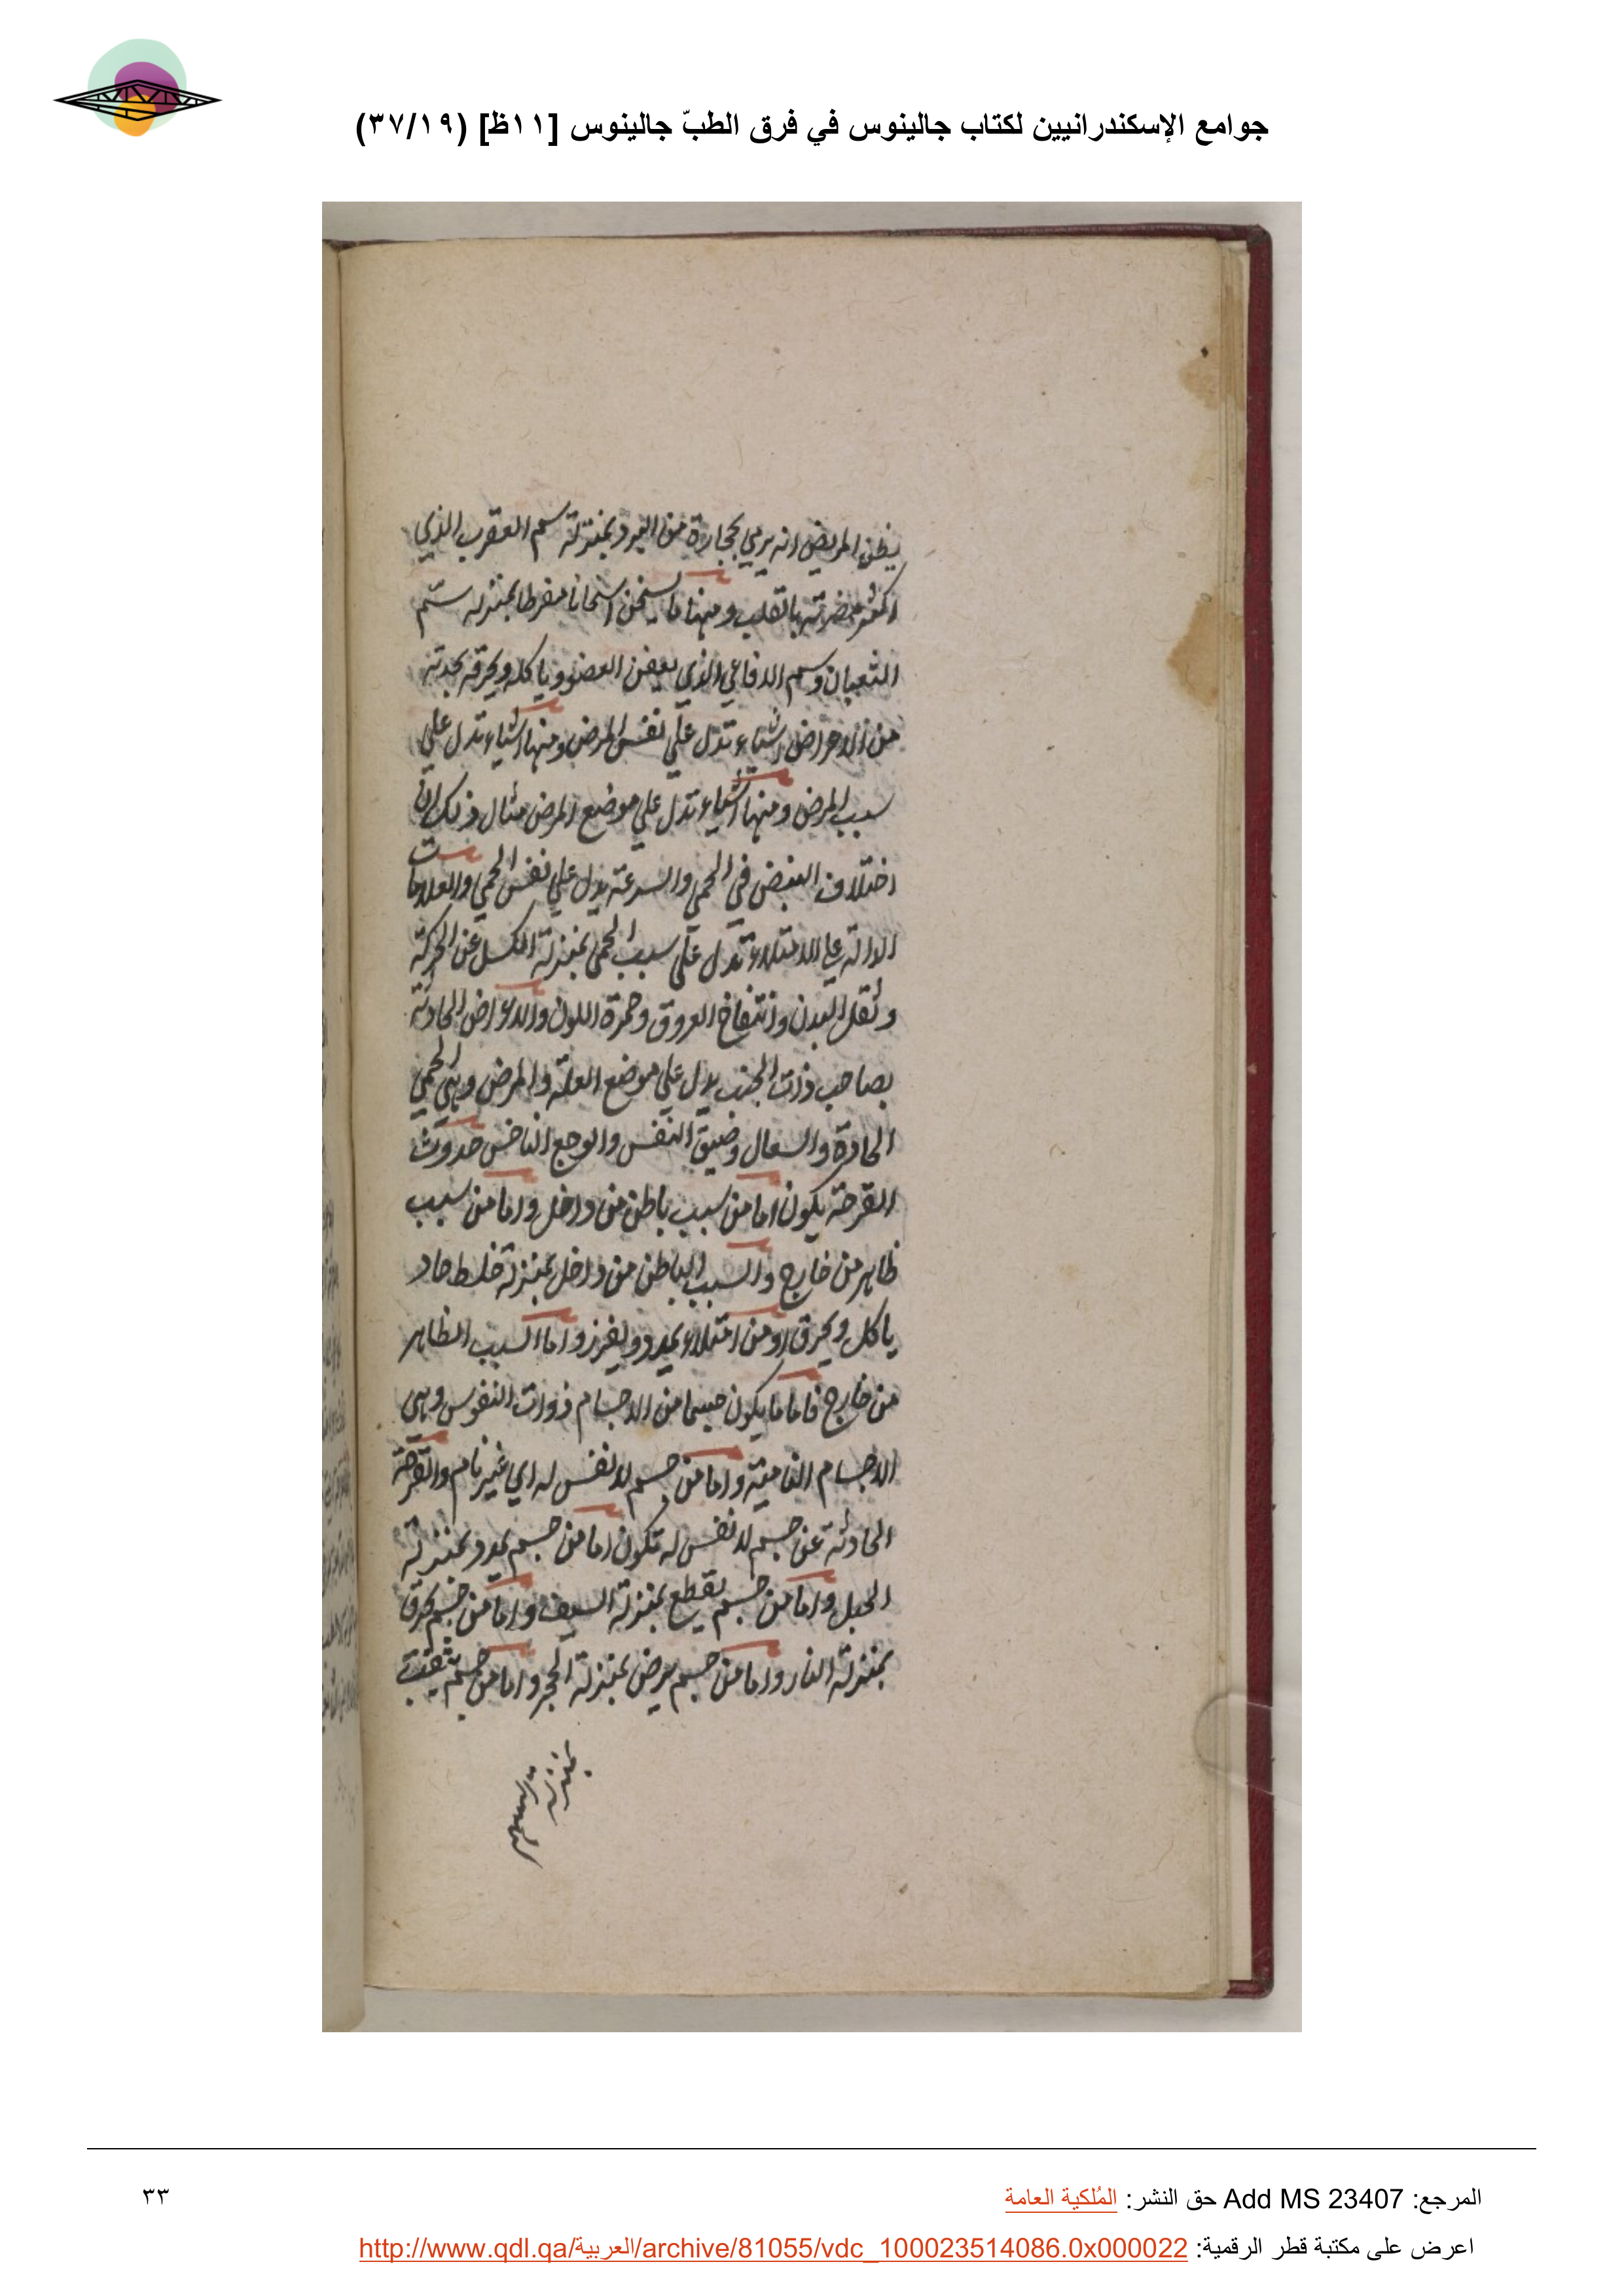 جوامع الإسكندرانيين لكتاب جالينوس في فرق الطبّ جالينوس [١١ظ] (٣٧/١٩)
يظن المريض انه يرمي بحجارة من البرد بمنزلة سم العقرب الذي
اكثر مضرته بالقلب ومنها ما يسخن اسخانا مفرطا بمنزله سم
الثعبان وسم الافاعي الذي يعفن العضو وياكله ويحرقه بحدته
من الاعراض اشياء تدل علي نفس المرض ومنها اشياء تدل علي
سبب المرض ومنها اشياء تدل علي موضع المرض مثال ذلك ان
اختلاف النبض في الحمي والسرعة يدل علي نفس الحمي والعلامات
الدالة علي الامتلاء تدل علي سبب الحمي بمنزلة الكسل عن الحركة
وثقل البدن وانتفاخ العروق وحمرة اللون والاعراض الحادثة
بصاحب ذات الجنب يدل علي موضع العلة والمرض وهي الحمي
الحادة والسعال وضيق النفس والوجع الناخس حدوث
القرحة يكون اما من سبب باطن من داخل واما من سبب
ظاهر من خارج والسبب الباطن من داخل بمنزلة خلط حاد
ياكل ويحرق او من امتلاء يمدد ويفزر واما السبب الظاهر
من خارج فاما ما يكون من الاجسام ذوات النفوس وهي
الاجسام النامية واما من جسم لا نفس له اي غير نام والقرحة
الحادثة عن جسم لا نفس له تكون اما من جسم يمدد بمنزلة
الحبل واما من جسم يقطع بمنزلة السيف واما من جسم يحرق
بمنزلة النار واما من جسم يرض بمنزلة الحجر واما من جسم يثقب
بمنزلة السهم
المرجع: Add MS 23407 حق النشر: المُلكية العامة
٣٣
اعرض على مكتبة قطر الرقمية: http://www.qdl.qa/العربية/archive/81055/vdc_100023514086.0x000022